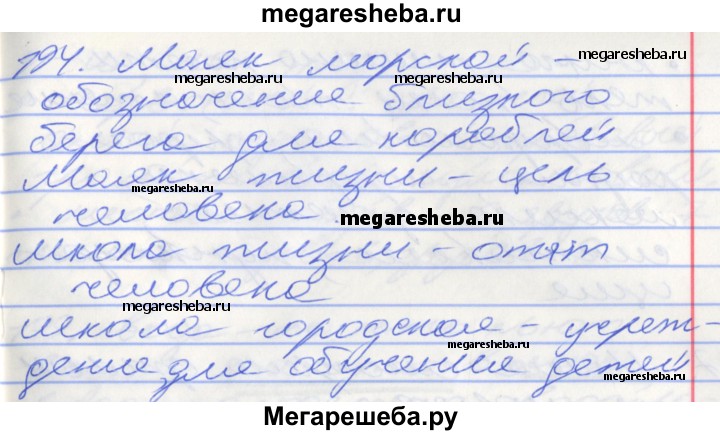 megaresheba.ru
194. Маяк морской -
megaresheba.ru
megaresheba.ru
обозначение близкого
megaresheba.ru
megaresheba.ru
берега для кораблей
Маяк жизни - цель
megaresheba.ru
человека
megaresheba.ru
школа жизни - опыт
megaresheba.ru
человека
megaresheba.ru
школа городская - учреж-
дение для обучения детей
megaresheba.ru
megaresheba.ru
Мегарешеба.ру